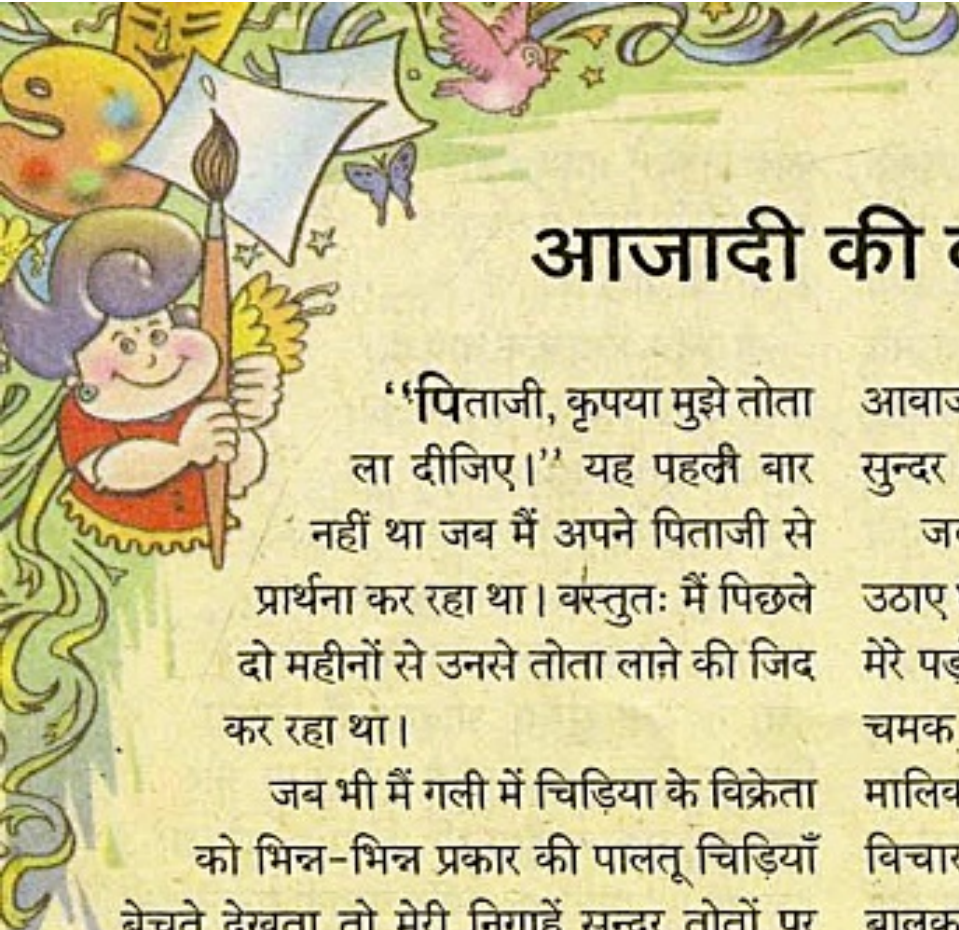 आजादी की
‘‘पिताजी, कृपया मुझे तोता
ला दीजिए।’’ यह पहली बार
नहीं था जब मैं अपने पिताजी से
प्रार्थना कर रहा था। वस्तुतः मैं पिछले
दो महीनों से उनसे तोता लाने की जिद
कर रहा था।
जब भी मैं गली में चिड़िया के विक्रेता
को भिन्न-भिन्न प्रकार की पालतू चिड़ियाँ
बेचते देखता तो मेरी निगाहें सुन्दर तोतों पर
सुन्दर
उठाए
मेरे
चमक